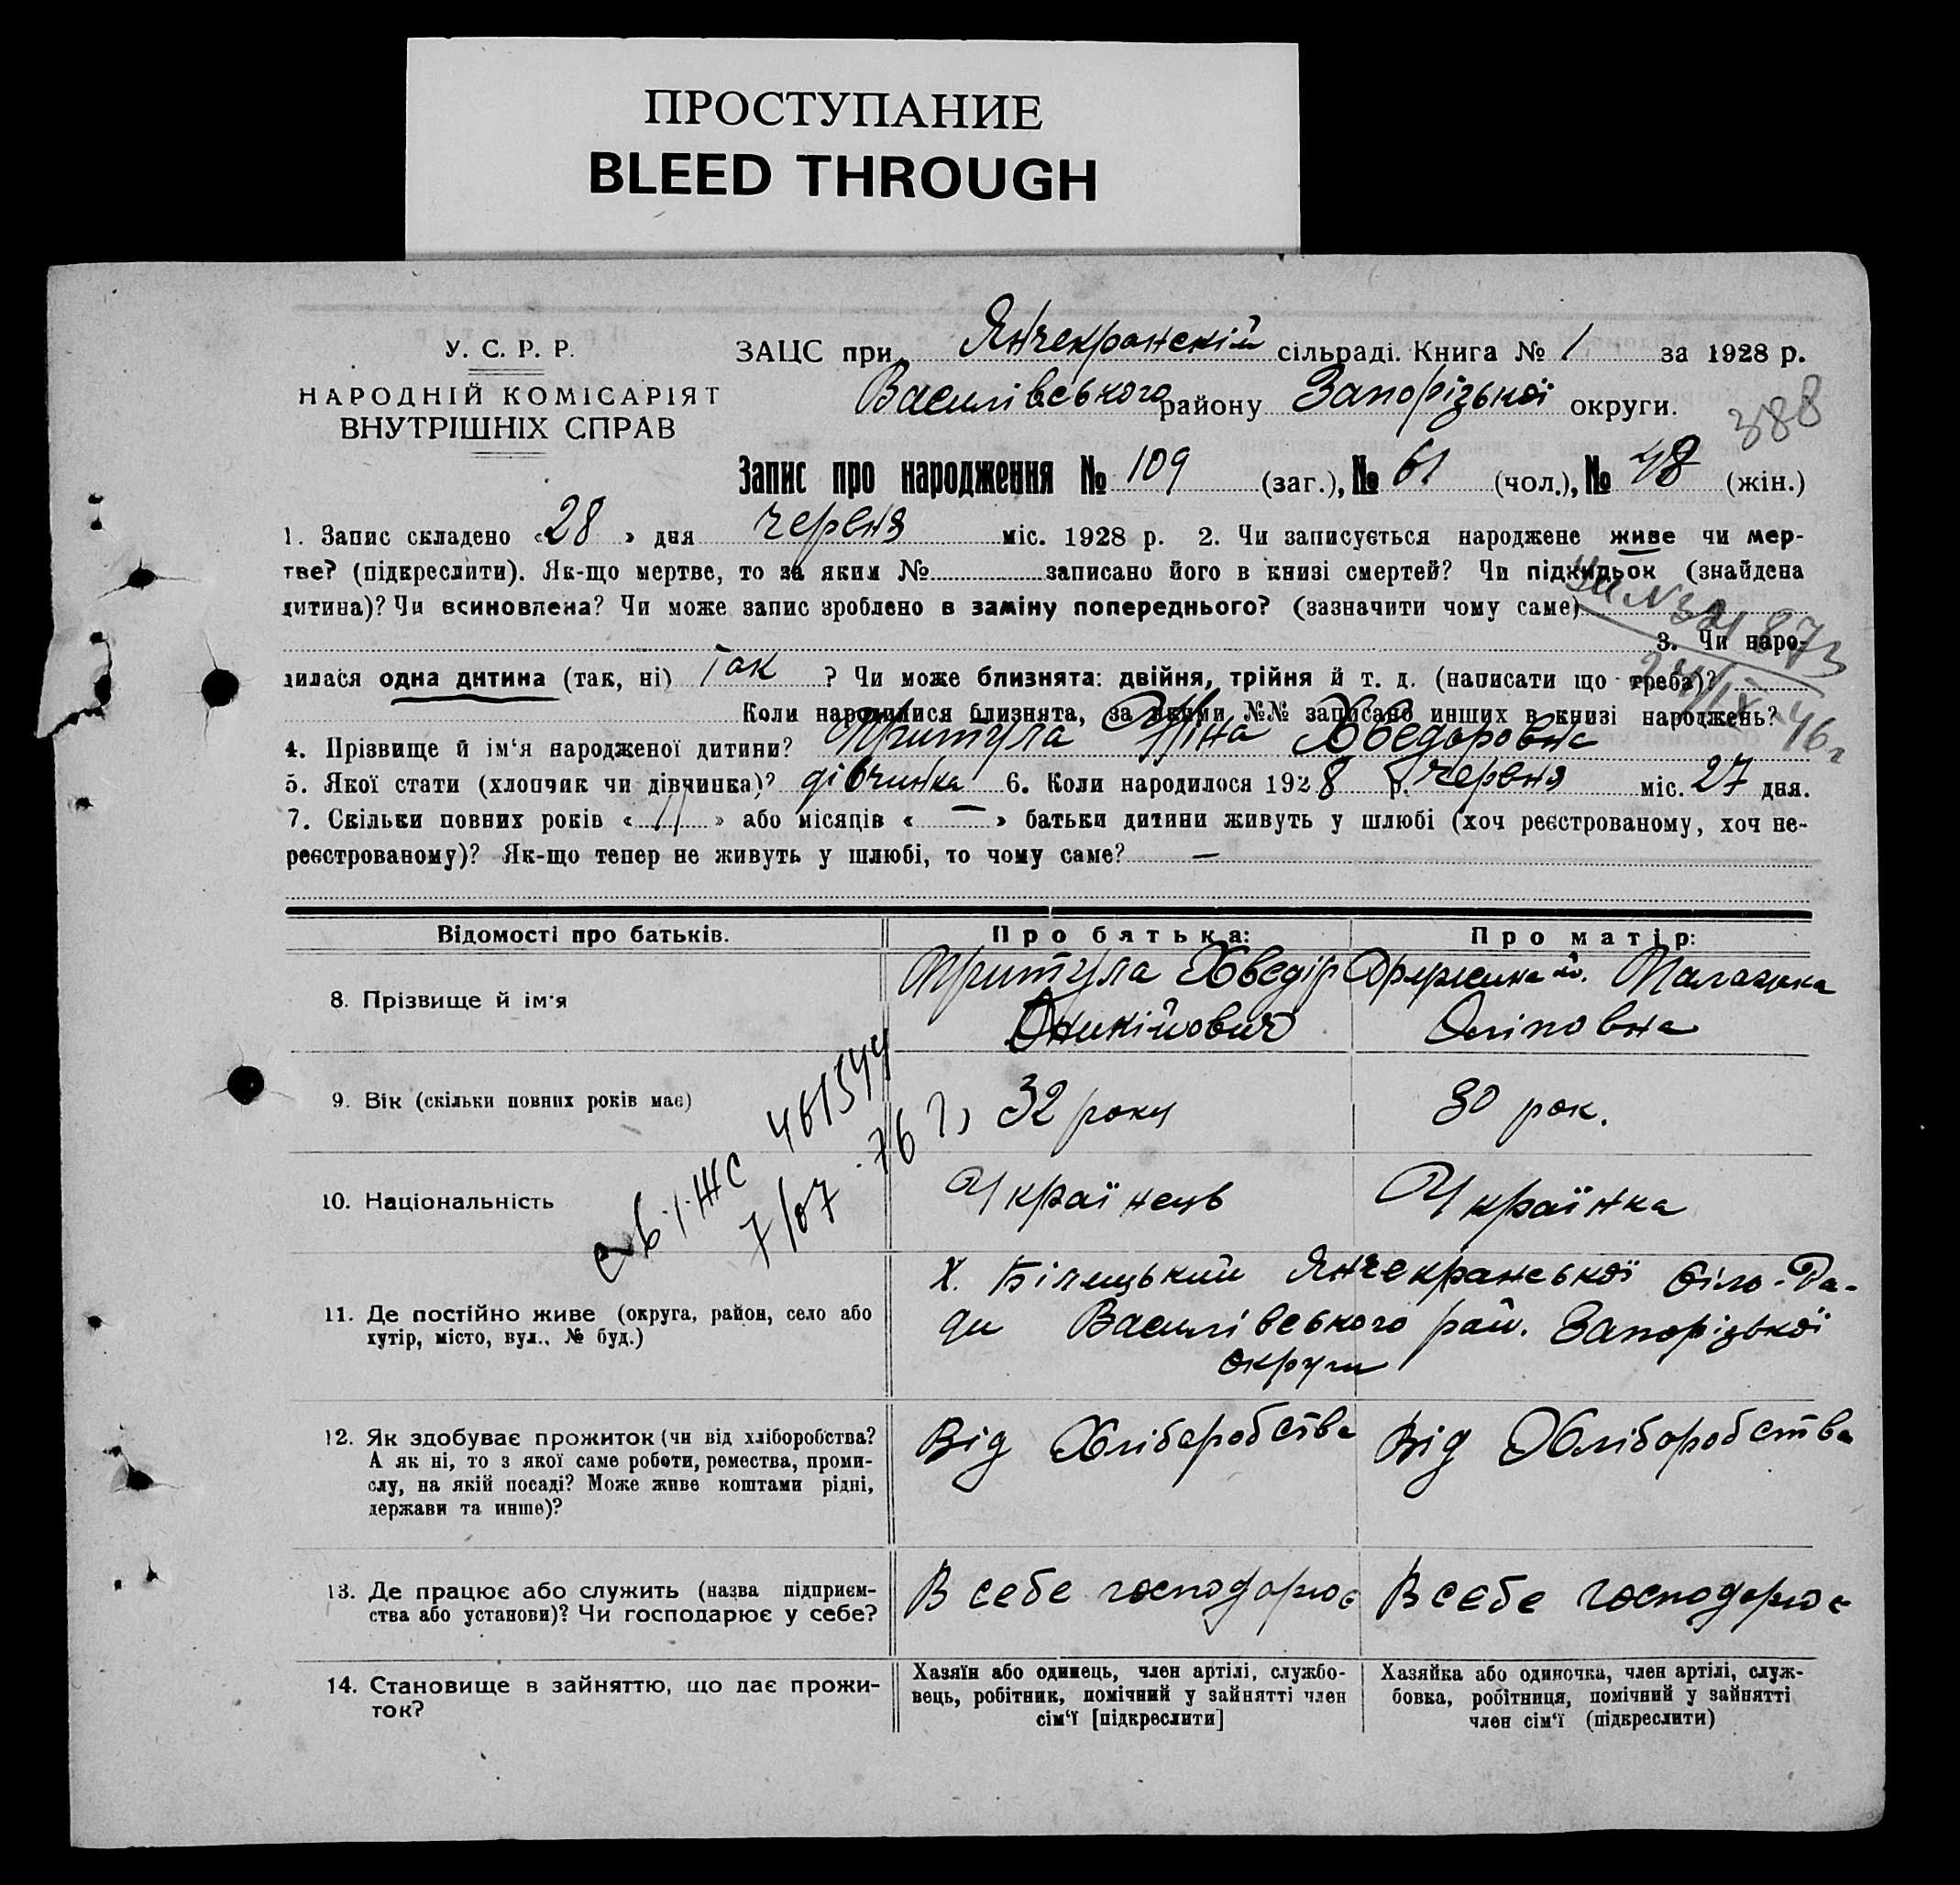 ПРОСТУПАНИЕ
BLEED THROUGH
У. С. Р. Р.
НАРОДНІЙ КОМІСАРІЯТ
ВНУТРІШНІХ СПРАВ
ЗАЦС при Янчекранскій сільраді. Книга № 1 за 1928 р.
Василівського району Запорізької округи.
388
Запис про народження № 109 (заг.), № 61 (чол.), № 48 (жін.)
1. Запис складено «28» дня червня міс. 1928 р. 2. Чи записується народжене живе чи мер-
тве? (підкреслити). Як-що мертве, то за яким № записано його в книзі смертей? Чи підкидьок (знайдена
дитина)? Чи всиновлена? Чи може запис зроблено в заміну попереднього? (зазначити чому саме)
3. Чи наро-
дилася одна дитина (так, ні) Так ? Чи може близнята: двійня, трійня й т. д. (написати що треба)?
Коли народилися близнята, за якими №№ записано инших в книзі народжень?
4. Прізвище й ім‘я народженої дитини? Притула Ніна Хведоровна
5. Якої стати (хлопчик чи дівчинка)? дівчинка 6. Коли народилося 1928 р. червня міс. 27 дня.
7. Скільки повних років « 11 » або місяців « — » батьки дитини живуть у шлюбі (хоч реєстрованому, хоч не-
реєстрованому)? Як-що тепер не живуть у шлюбі, то чому саме? —
Відомості про батьків. Про батька: Про матір:
8. Прізвище й ім‘я
Притула Хведір Оникійович
Дружина й. Палажка Оліповна
9. Вік (скільки повних років має) 32 роки 30 рок.
461544
7/07 76 г.
10. Національність Українець Українка
11. Де постійно живе (округа, район, село або
хутір, місто, вул., № буд.)
Х. Білицький Янчекранської Сіло-Ра-
ди Василівського рай. Запорізької
округи
12. Як здобуває прожиток (чи від хліборобства?
А як ні, то з якої саме роботи, ремества, проми-
слу, на якій посаді? Може живе коштами рідні,
держави та инше)?
Від Хліборобства Від Хліборобства
13. Де працює або служить (назва підприєм-
ства або установи)? Чи господарює у себе?
В себе господарює В себе господарює
14. Становище в зайняттю, що дає прожи-
ток?
Хазяїн або одинець, член артілі, службо-
вець, робітник, помічний у зайнятті член
сім‘ї [підкреслити]
Хазяйка або одиночка, член артілі, служ-
бовка, робітниця, помічний у зайнятті
член сім‘ї (підкреслити)